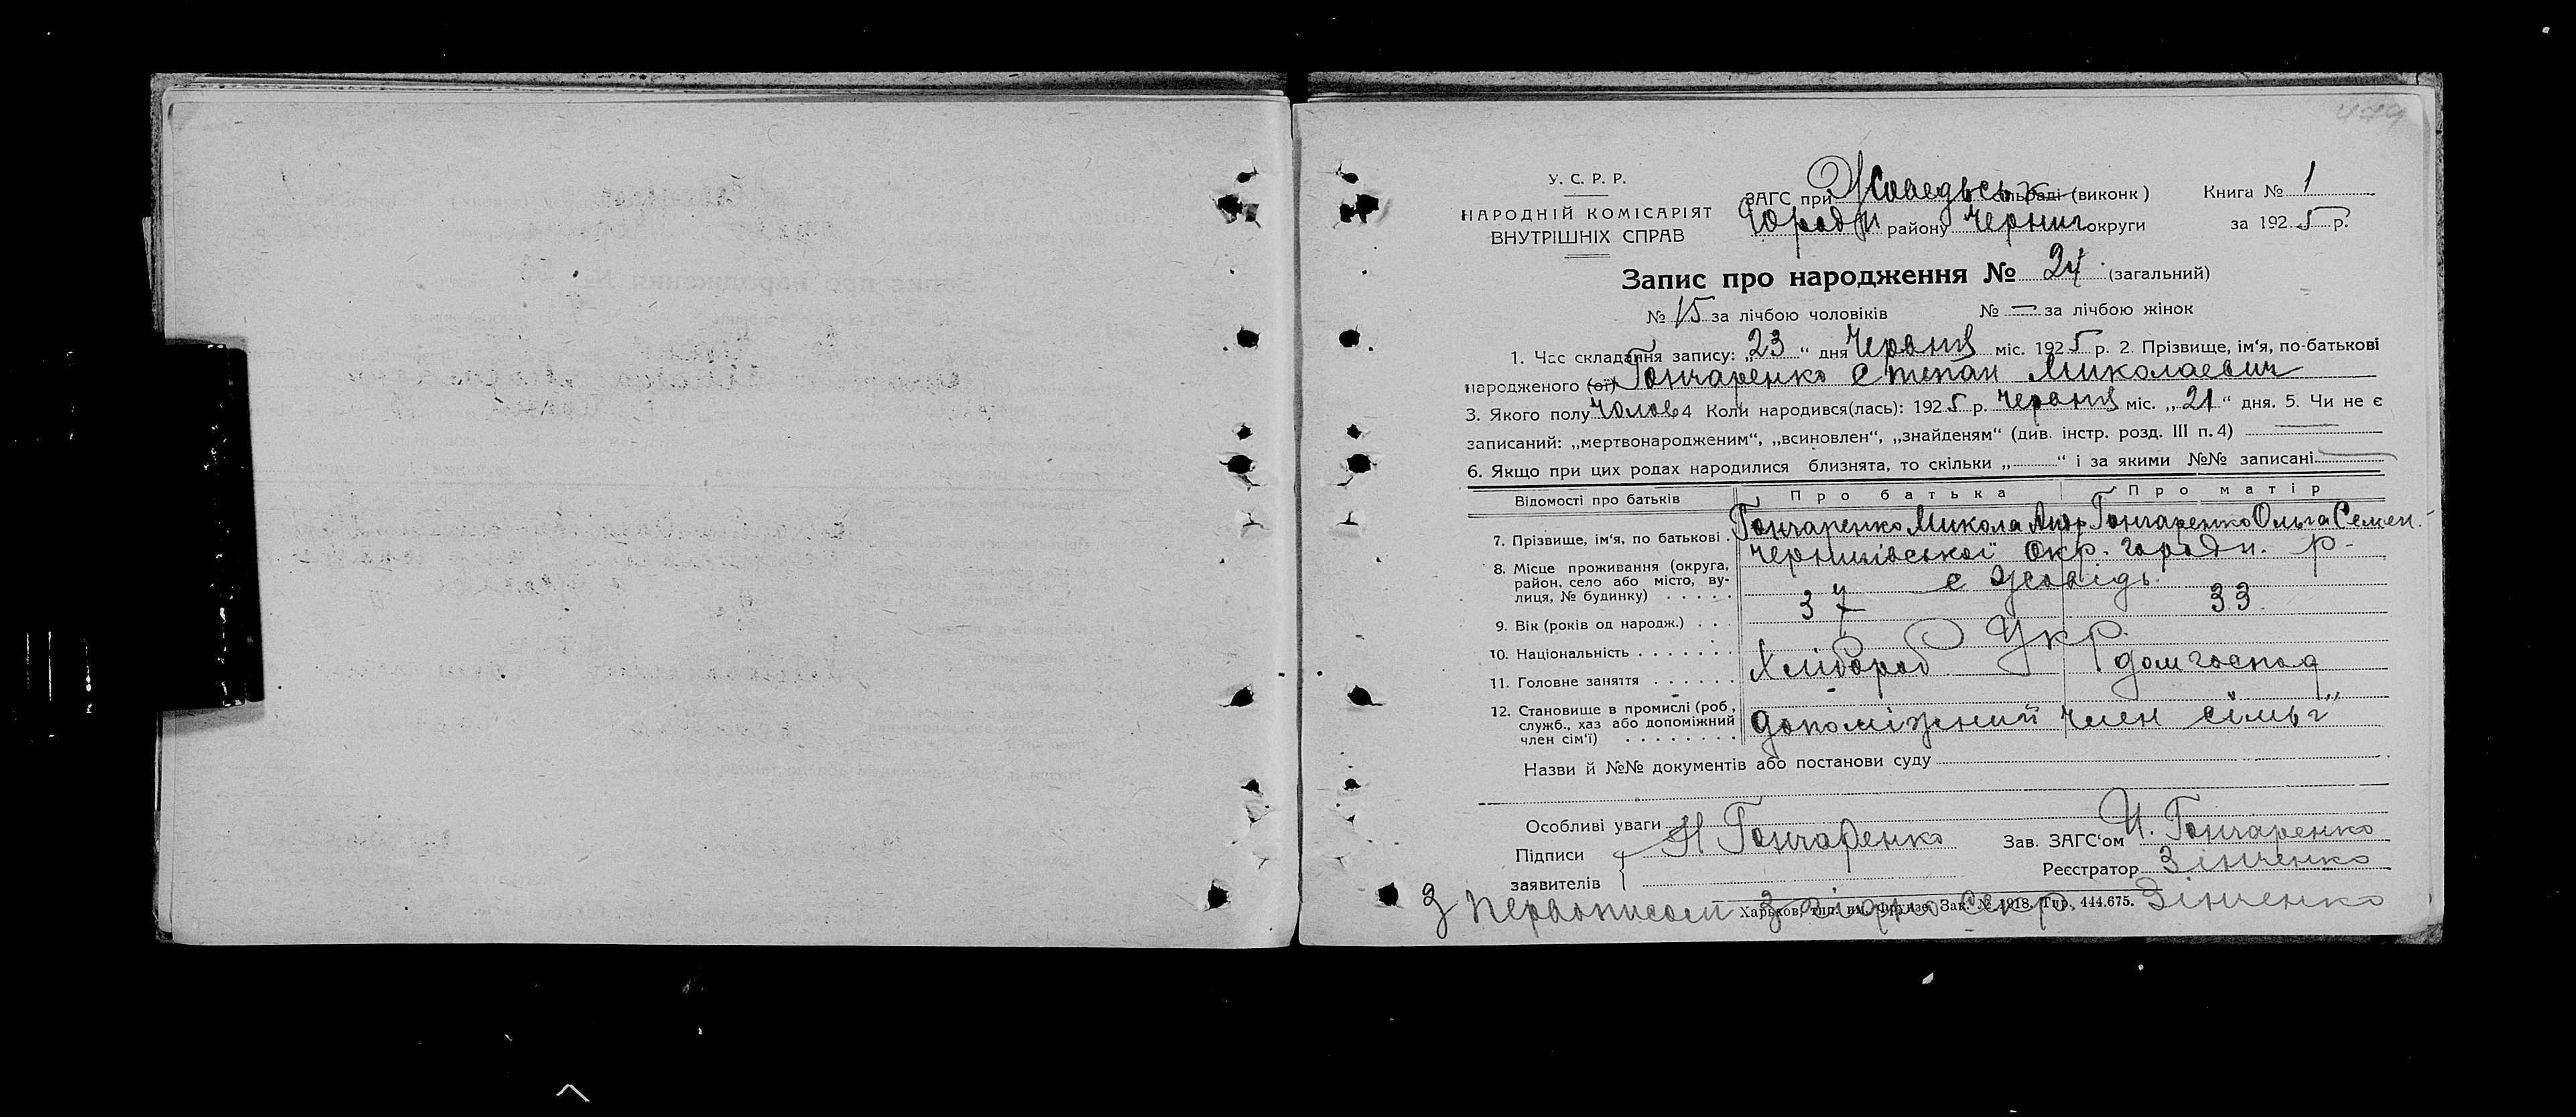 479
У. С. Р. Р.
НАРОДНІЙ КОМІСАРІЯТ
ВНУТРІШНІХ СПРАВ
ЗАГС при Жоведьськ сільраді (виконк)
Городн району Черниг округи
Книга № 1
за 1925 р.
Запис про народження № 24 (загальний)
№ 15 за лічбою чоловіків № — за лічбою жінок
1. Час складання запису: „23“ дня Червня міс. 1925 р. 2. Прізвище, ім'я, по-батькові
народженого (ої) Гончаренко Степан Миколаевич
3. Якого полу Чолов 4 Коли народився(лась): 1925 р. Червня міс. „21“ дня. 5. Чи не є
записаний: „мертвонародженим“, „всиновлен“, „знайденям“ (див. інстр. розд. III п. 4) —
6. Якщо при цих родах народилися близнята, то скільки „ “ і за якими №№ записані —
Відомості про батьків Про батька Про матір
7. Прізвище, ім'я, по батькові . Гончаренко Микола Андр Гончаренко Ольга Семен.
8. Місце проживання (округа, район, село або місто, вулиця, № будинку) . . . . . Чернигівської окр. Городн. р-
с Жовідь
9. Вік (років од народж.) . . . 37 33
10. Національність . . . . . . . Укр.
11. Головне заняття . . . . . . Хлібороб дом господ
12. Становище в промислі (роб., служб., хаз або допоміжний член сім'ї) . . . . . . . . допоміжний член сімьї
Назви й №№ документів або постанови суду
Особливі уваги
Підписи
заявителів
Н Гончаренко
Зав. ЗАГС'ом И. Гончаренко
Реєстратор Зінченко
З первописом згідно Секр. Зінченко
Харьков, тип. им. Фрунзе. Зак. № 1918. Тир. 444.675.